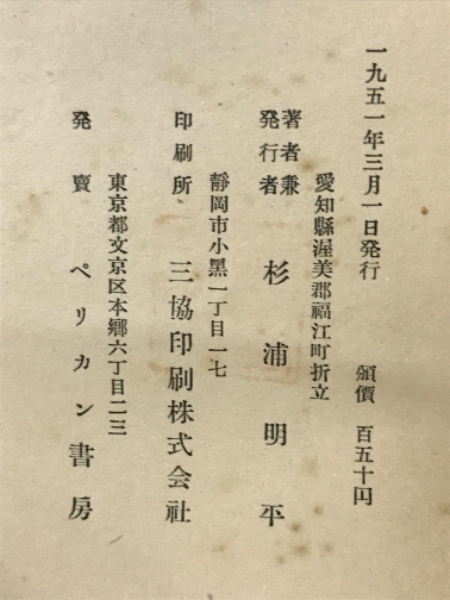 一九五一年三月一日発行
頒價 百五十円
愛知縣渥美郡福江町折立
著者兼
発行者 杉浦明平
靜岡市小黑一丁目一七
印刷所 三協印刷株式会社
東京都文京区本郷六丁目二三
発賣 ペリカン書房